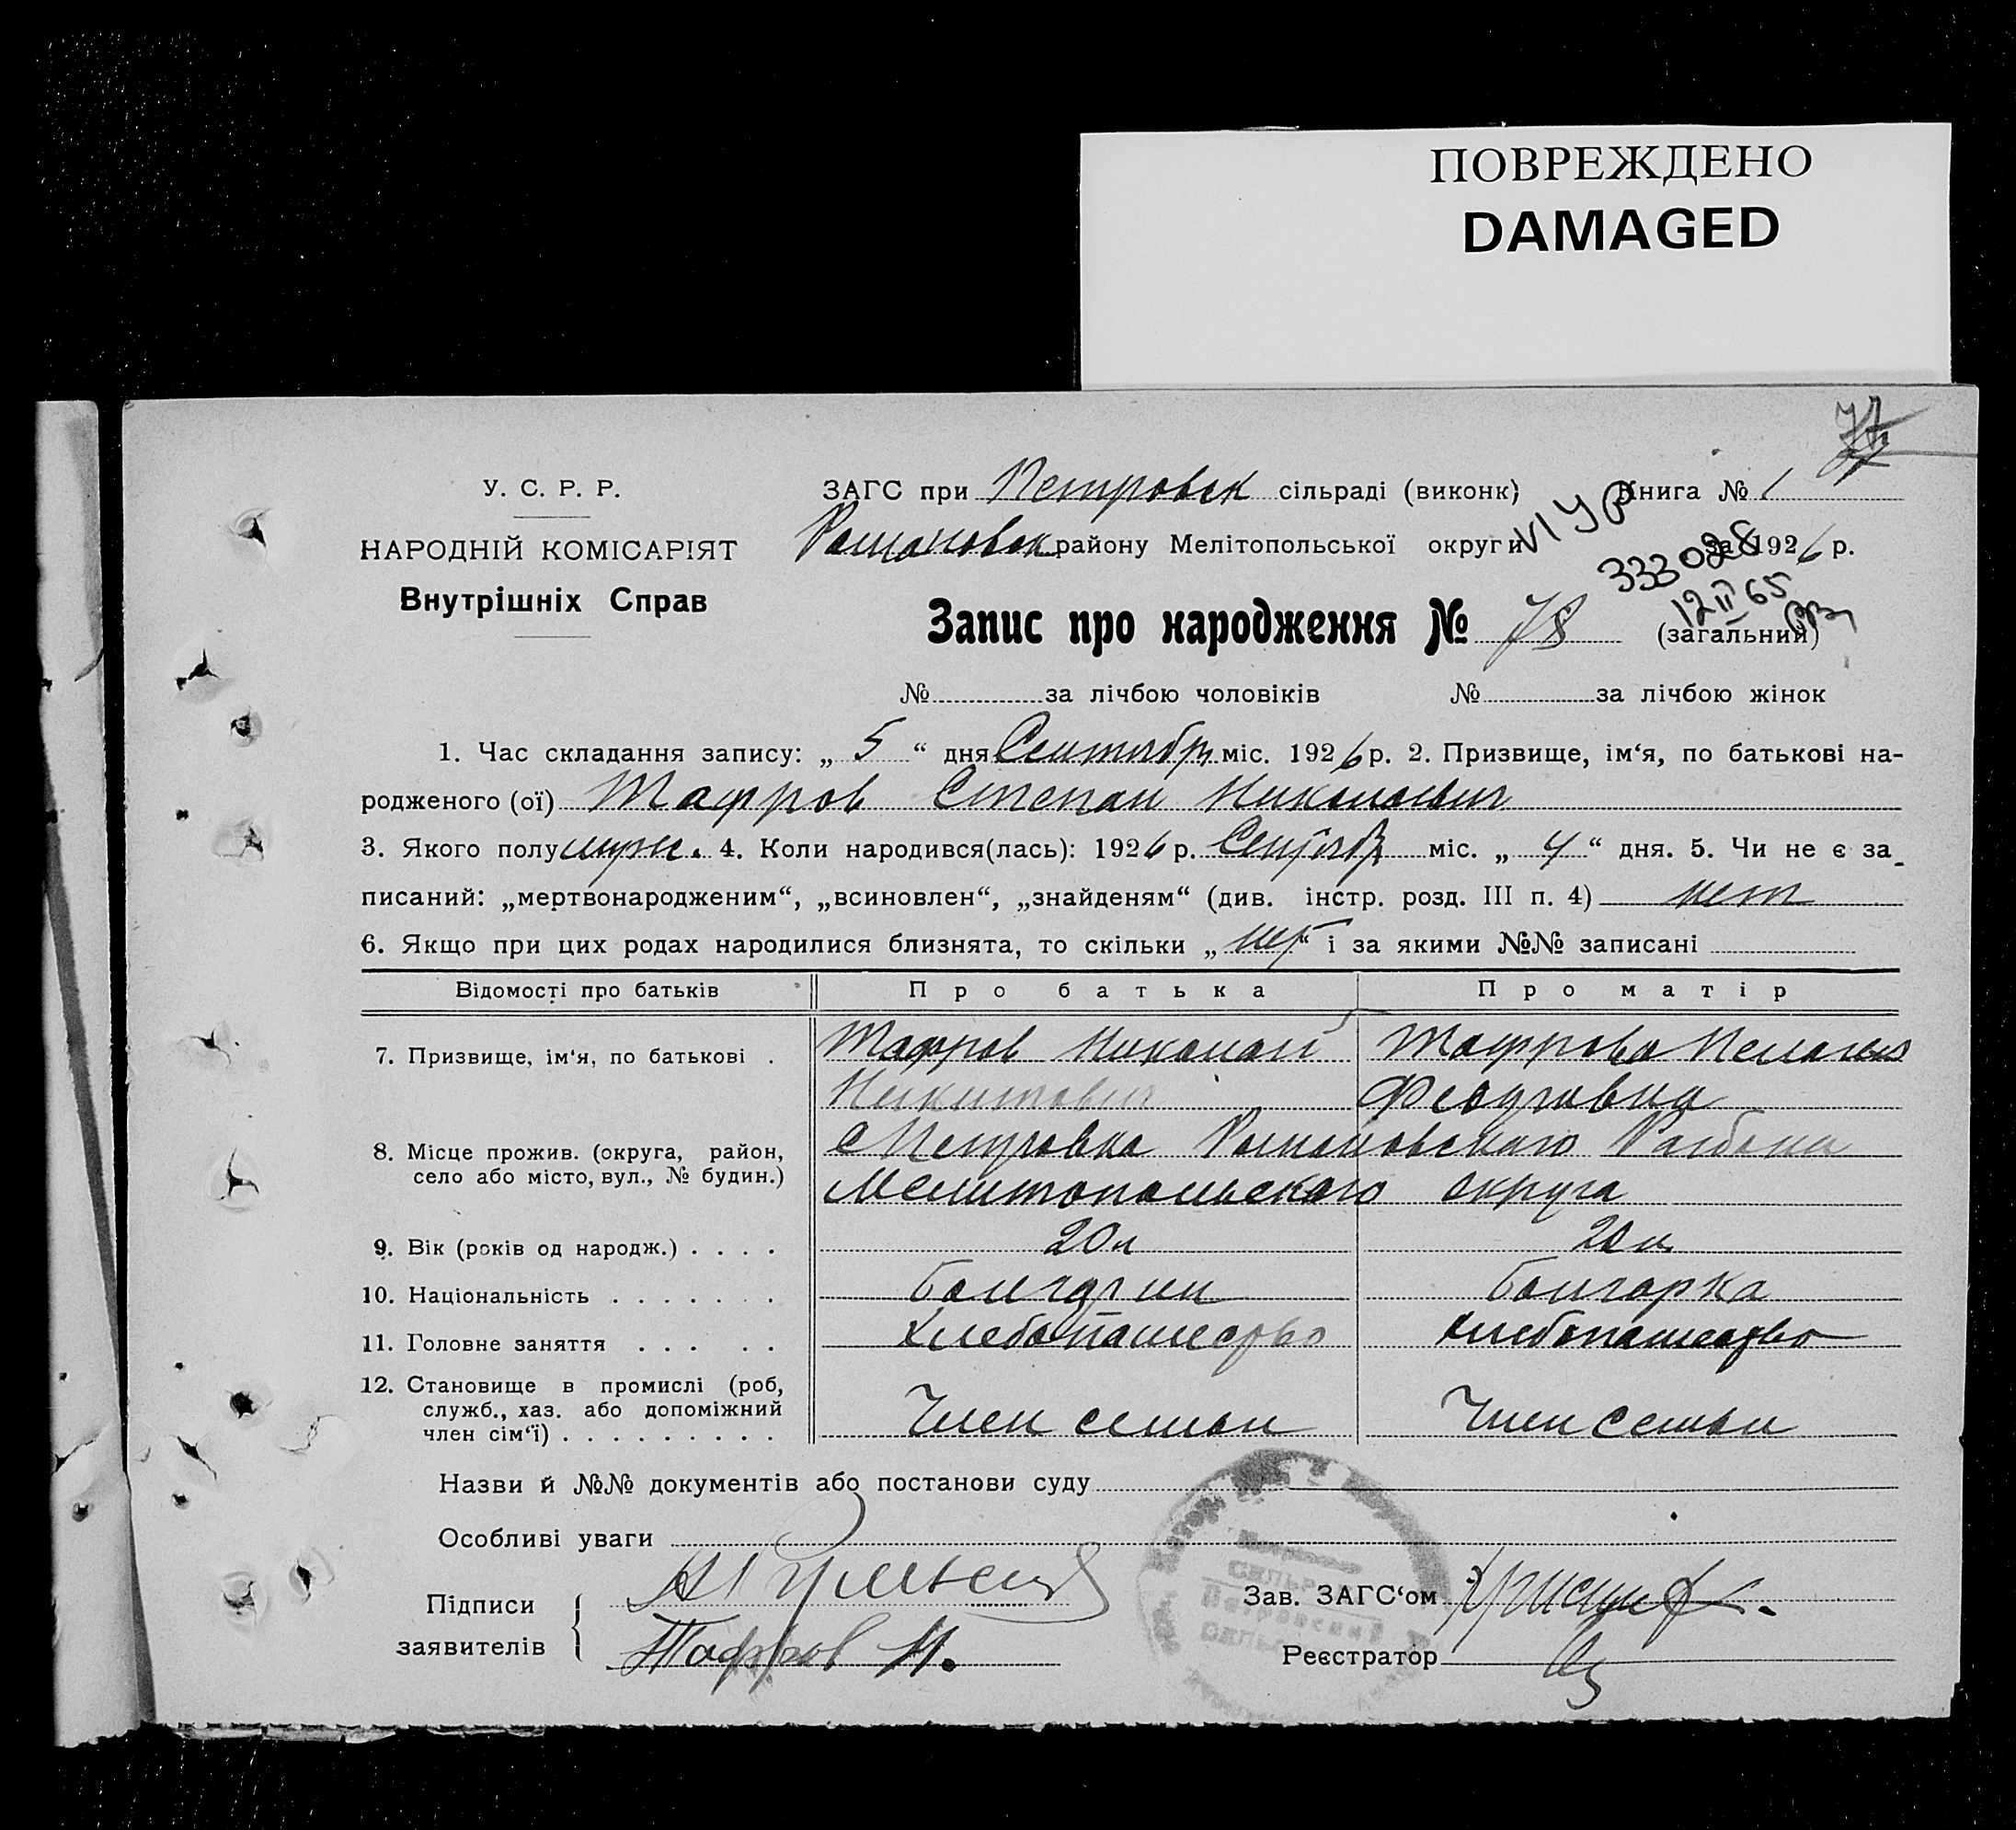 ПОВРЕЖДЕНО
DAMAGED
У. С. Р. Р.
НАРОДНІЙ КОМІСАРІЯТ
Внутрішніх Справ
ЗАГС при Петровск сільраді (виконк) Книга № 1
Романовск району Мелітопольської округи за 1926 р.
VI УР
333028
12 II 65
Запис про народження № 78 (загальний)
№ за лічбою чоловіків № за лічбою жінок
1. Час складання запису: „ 5 “ дня Сентября міс. 1926 р. 2. Призвище, ім‘я, по батькові на-
родженого (ої) Тафров Степан Николаевич
3. Якого полу муж. 4. Коли народився(лась): 1926 р. Сентябр міс. „ 4 “ дня. 5. Чи не є за-
писаний: „мертвонародженим“, „всиновлен“, „знайденям“ (див. інстр. розд. III п. 4) нет
6. Якщо при цих родах народилися близнята, то скільки „ нет “ і за якими №№ записані
Відомості про батьків Про батька Про матір
7. Призвище, ім‘я, по батькові . Тафров Николай Тафрова Пелагея
Никитович Федоровна
8. Місце прожив. (округа, район, с Петровка Романовского Района
село або місто, вул., № будин.) Мелитопольского округа
9. Вік (років од народж.) . . . . 20 л 20 л
10. Національність . . . . . . . Болгарин болгарка
11. Головне заняття . . . . . Хлебопашество хлебопашество
12. Становище в промислі (роб, 
служб., хаз. або допоміжний Член семьи Член семьи
член сім‘ї) . . . . . . . . .
Назви й №№ документів або постанови суду
Особливі уваги
Підписи
заявителів Тафров Н.
Зав. ЗАГС‘ом
Реєстратор
Петровский